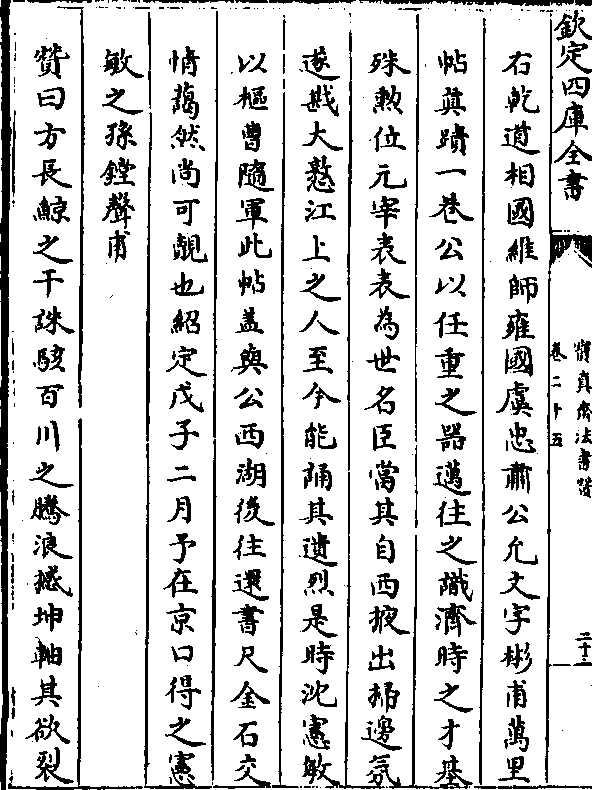 欽定四庫全書
寶真齋法書贊
卷二十五
二十三
右乾道相國維師雍國虞忠肅公允文字彬甫萬里
帖真蹟一卷公以任重之器邁往之識濟時之才基
殊勲位元宰表表為世名臣當其自西掖出掃邊氛
遂戡大憝江上之人至今能誦其遺烈是時沈憲敏
以樞曹隨軍此帖蓋與公西湖後往還書尺金石交
情藹然尚可覩也紹定戊子二月予在京口得之憲
敏之孫鏜聲甫
贊曰方長鯨之干誅駭百川之騰浪撼坤軸其欲裂